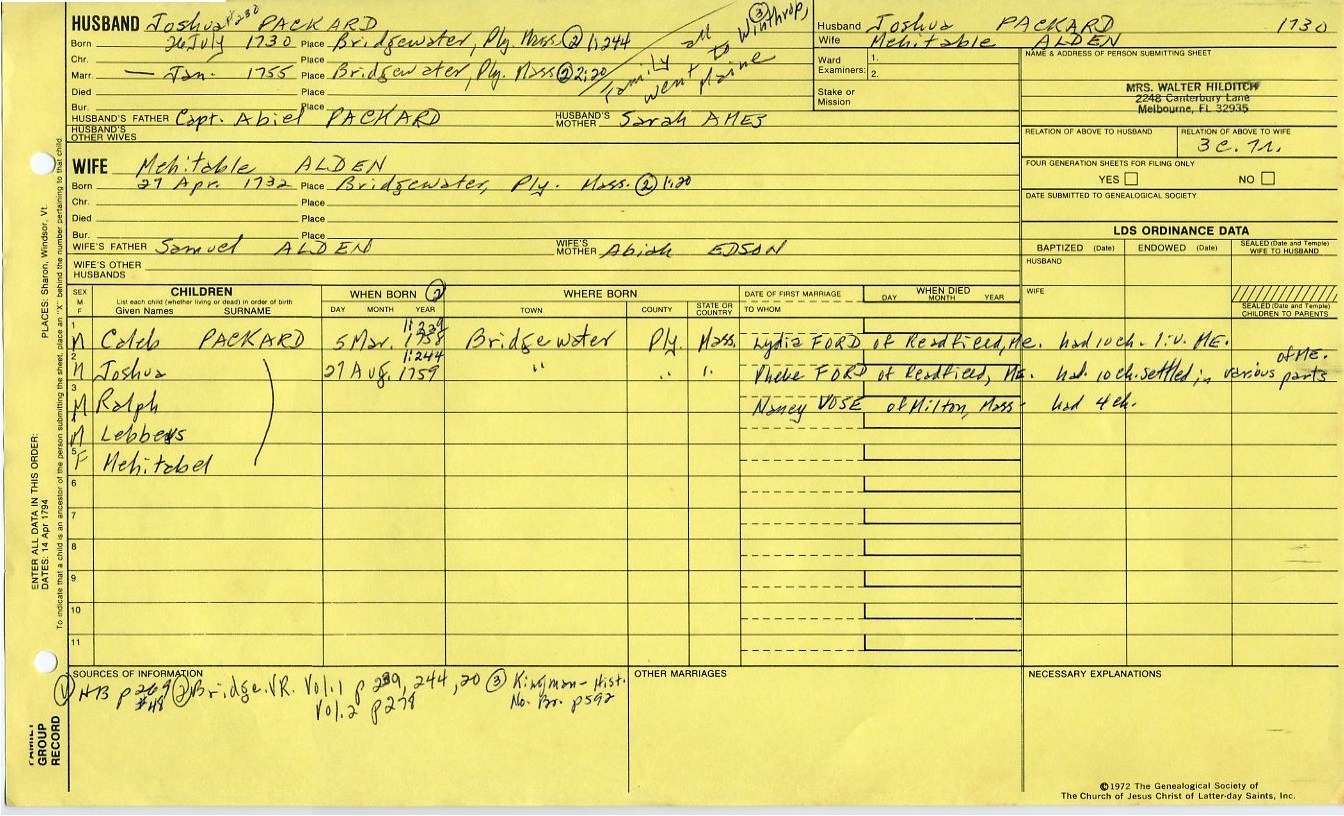 HUSBAND Joshua PACKARD
Born 26 July 1730 Place Bridgewater, Ply. Mass. ② 1:244
Chr. Place
Marr. — Jan. 1755 Place Bridgewater, Ply. Mass ② 2:20
Died Place
Bur. Place
③
Family all
went to Winthrop,
Maine
HUSBAND'S FATHER Capt. Abiel PACKARD HUSBAND'S MOTHER Sarah AMES
HUSBAND'S OTHER WIVES
Husband Joshua PACKARD 1730
Wife Mehitable ALDEN
Ward 1.
Examiners: 2.
Stake or
Mission
NAME & ADDRESS OF PERSON SUBMITTING SHEET
MRS. WALTER HILDITCH
2248 Canterbury Lane
Melbourne, FL 32935
RELATION OF ABOVE TO HUSBAND RELATION OF ABOVE TO WIFE
3 c. 7r.
FOUR GENERATION SHEETS FOR FILING ONLY
YES NO
DATE SUBMITTED TO GENEALOGICAL SOCIETY
WIFE Mehitable ALDEN
Born 27 Apr. 1732 Place Bridgewater, Ply. Mass. ② 1:20
Chr. Place
Died Place
Bur. Place
WIFE'S FATHER Samuel ALDEN WIFE'S MOTHER Abiah EDSON
WIFE'S OTHER HUSBANDS
LDS ORDINANCE DATA
BAPTIZED (Date) ENDOWED (Date) SEALED (Date and Temple) WIFE TO HUSBAND
HUSBAND
WIFE
SEALED (Date and Temple) CHILDREN TO PARENTS
SEX M F
CHILDREN
List each child (whether living or dead) in order of birth
Given Names SURNAME
WHEN BORN ②
DAY MONTH YEAR
WHERE BORN
TOWN COUNTY STATE OR COUNTRY
DATE OF FIRST MARRIAGE
TO WHOM
WHEN DIED
DAY MONTH YEAR
1 M Caleb PACKARD 5 Mar. 1758 1:239 Bridgewater Ply. Mass. Lydia FORD of Readfield, Me. had 10 ch. liv. ME.
2 M Joshua 27 Aug. 1759 1:244 " " " Phebe FORD of Readfield, ME. had 10 ch. settled in various parts of ME.
3 M Ralph Nancy VOSE of Milton, Mass. had 4 ch.
4 M Lebbeus
5 F Mehitabel
6
7
8
9
10
11
SOURCES OF INFORMATION
① HB p 269 #48 ② Bridge. VR. Vol. 1 p 239, 244, 20 ③ Kingman - Hist.
Vol. 2 p 278 No. Br. p 592
OTHER MARRIAGES
NECESSARY EXPLANATIONS
©1972 The Genealogical Society of
The Church of Jesus Christ of Latter-day Saints, Inc.
ENTER ALL DATA IN THIS ORDER:
DATES: 14 Apr 1794 PLACES: Sharon, Windsor, Vt.
To indicate that a child is an ancestor of the person submitting the sheet, place an "X" behind the number pertaining to that child
FAMILY
GROUP
RECORD